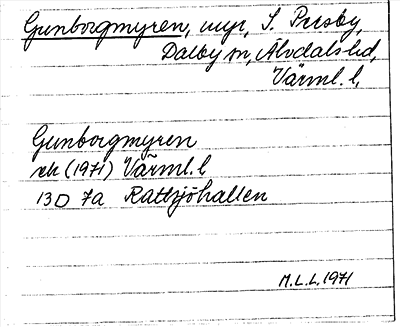 Gunborgmyren, myr, S. Persby,
Dalby sn, Älvdals hd,
Värml. l.
Gunborgmyren
rek (1971) Värml. l
13D 7a Rattsjöhallen
M.L.L. 1971